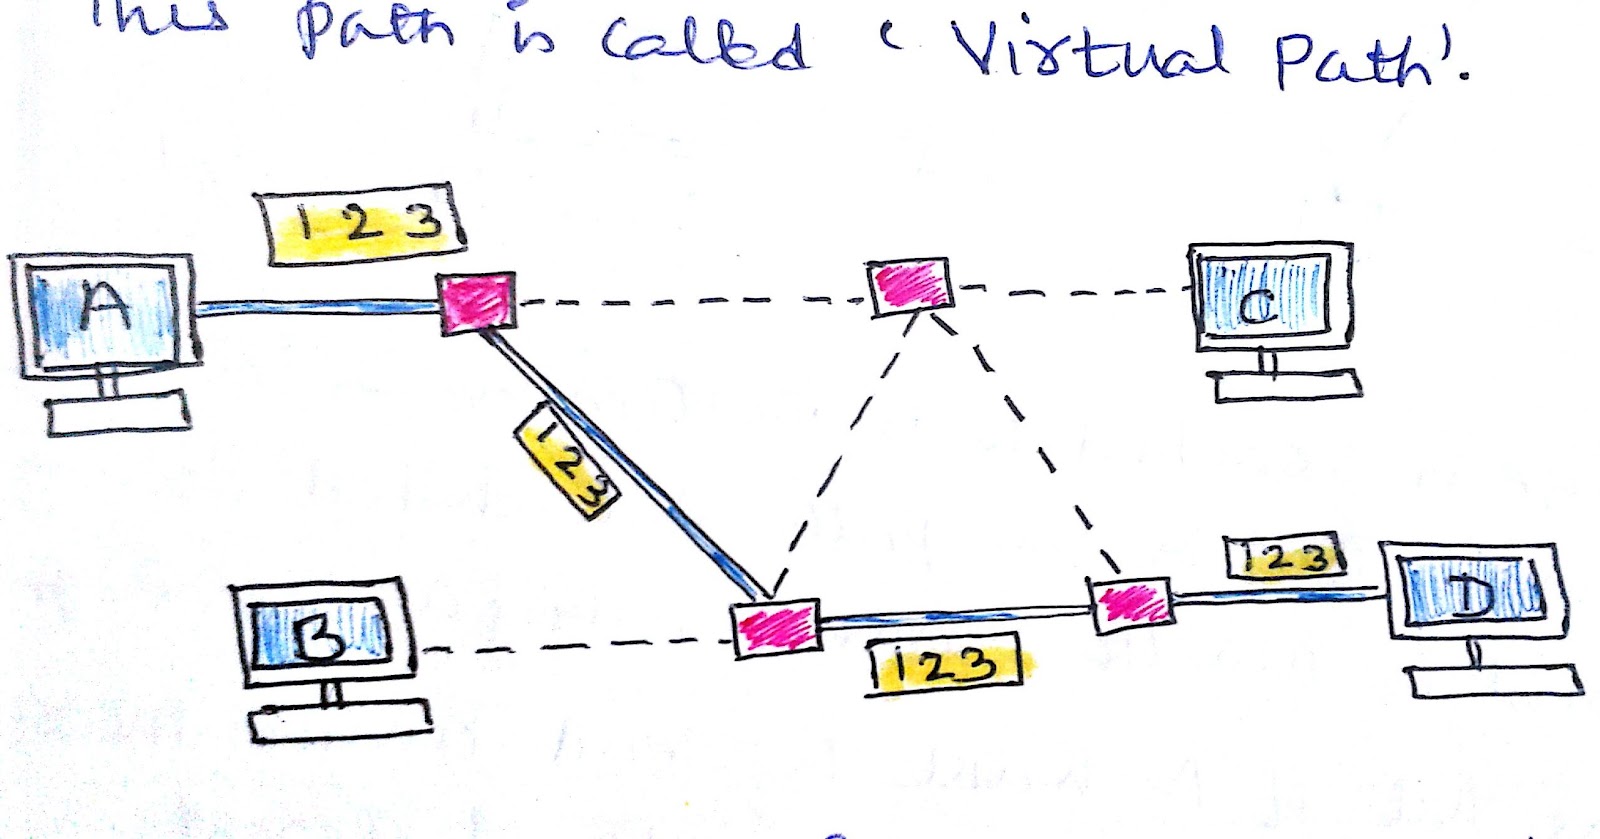 This path is called ' Virtual Path'.
1 2 3
A
C
1 2 3
1 2 3
D
B
1 2 3